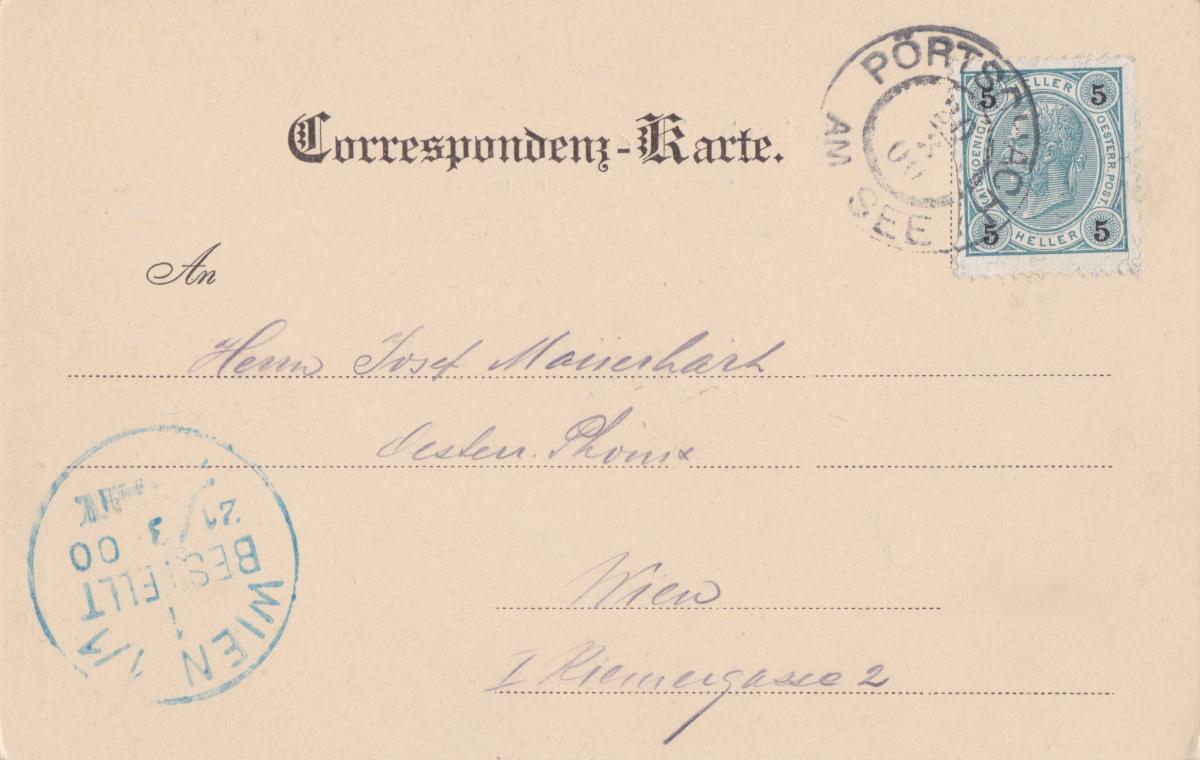 Correspondenz-Karte.
PÖRTSCHACH
AM SEE
5 HELLER 5
KAIS. KOENIGL. OESTERR. POST.
5 HELLER 5
An
Herrn Josef Mauerhart
Oesterr. Phönix
Wien
I Riemergasse 2
WIEN 1/1
BESTELLT
21/3 00